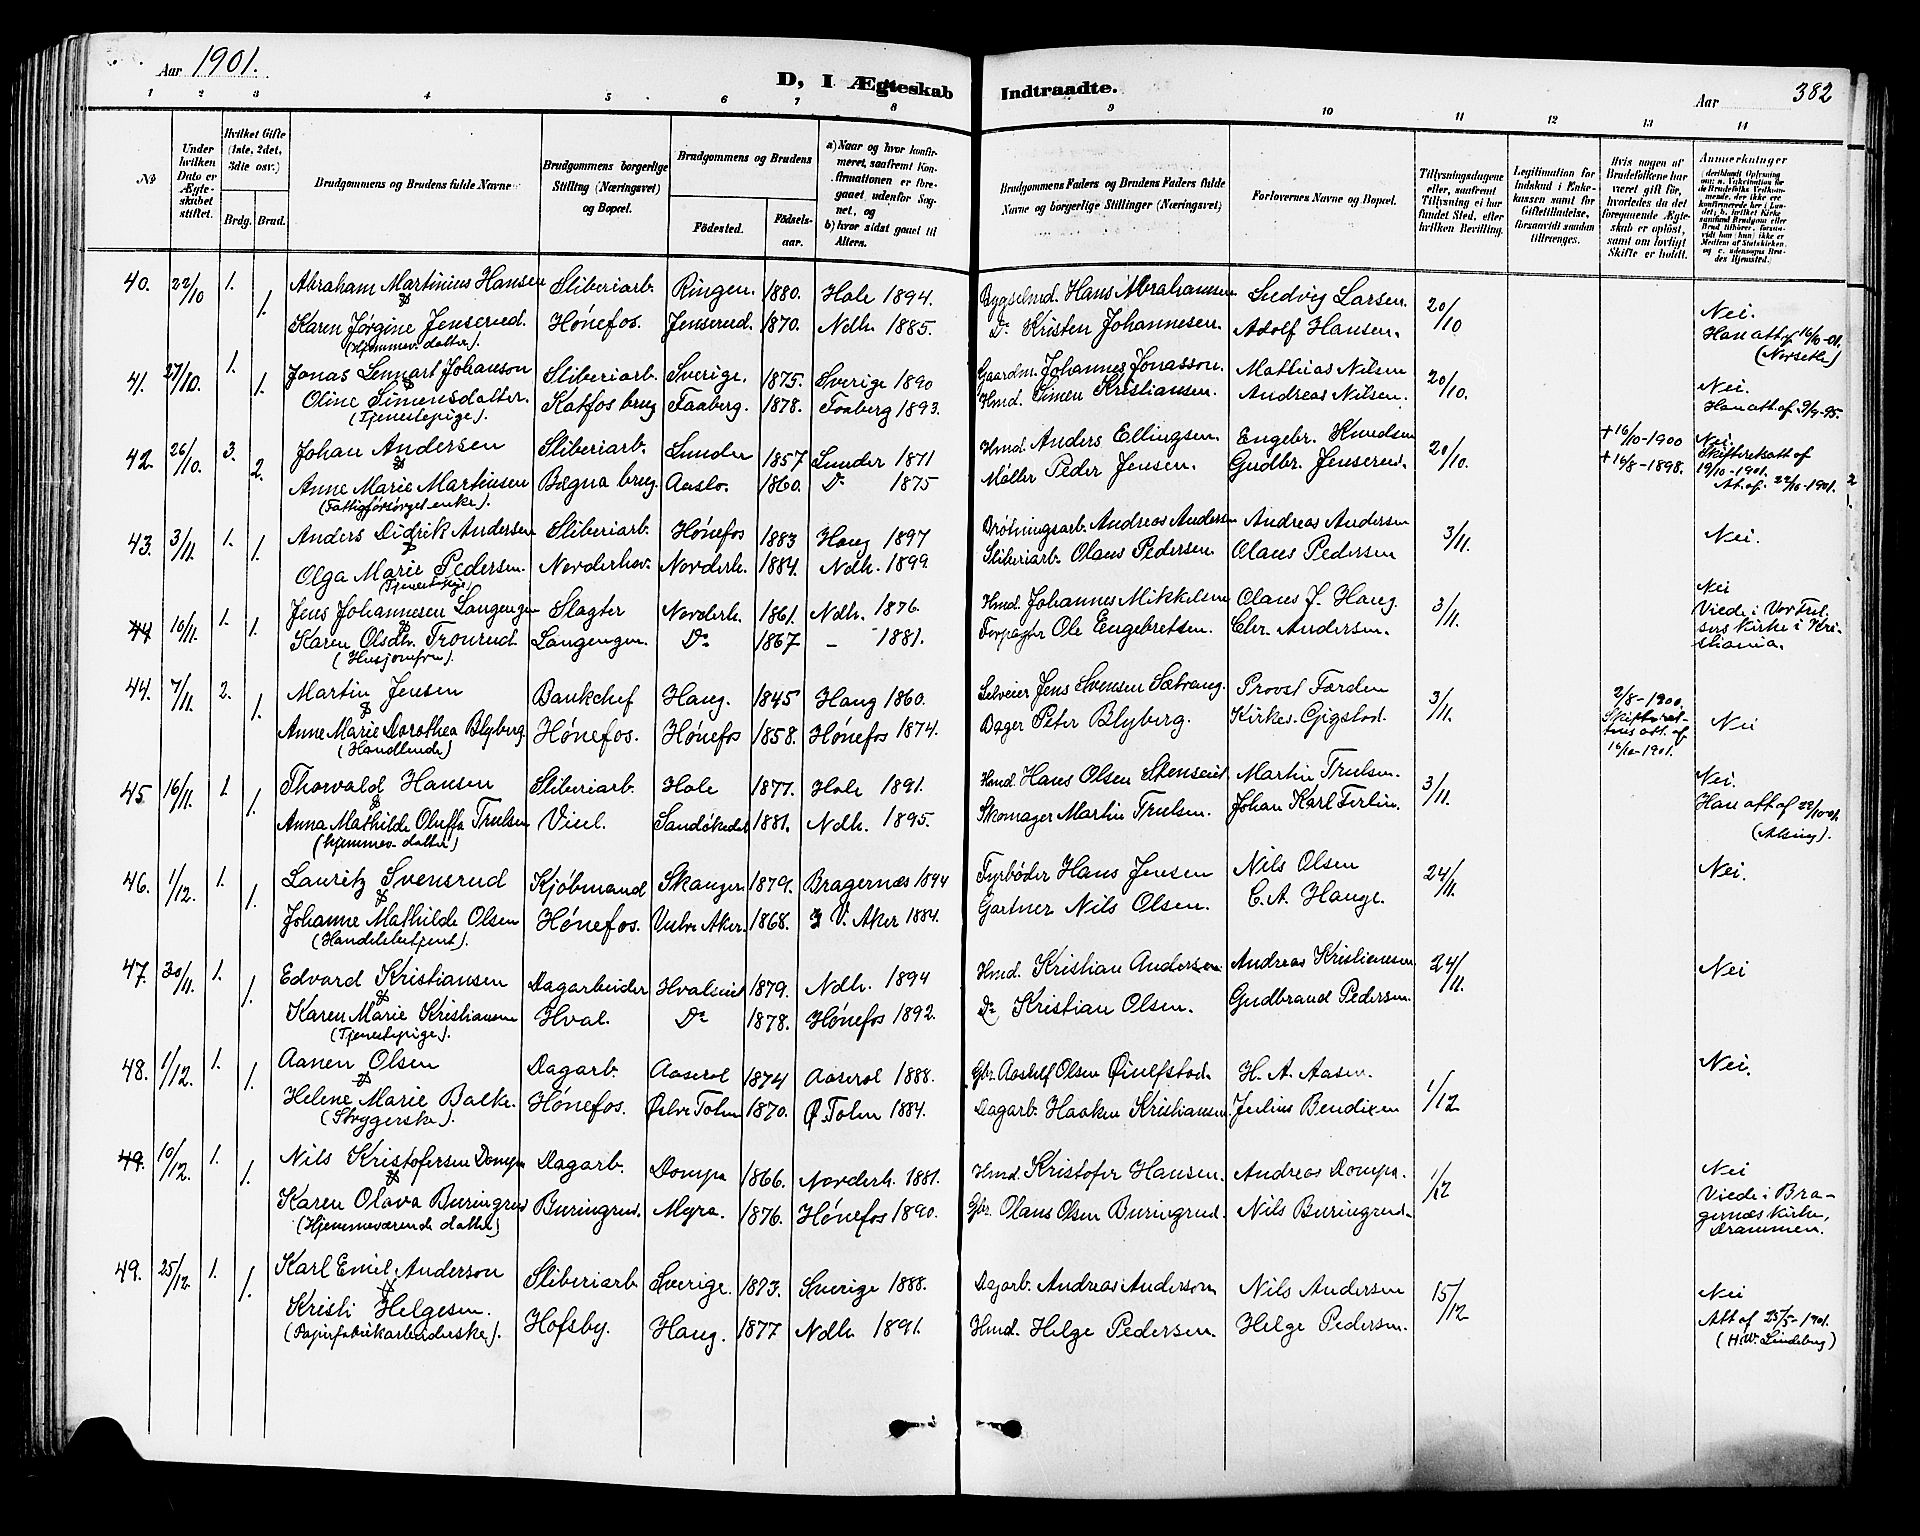 Aar 1901.
D, I Ægteskab Indtraadte.
Aar 382
1 2 3 4 5 6 7 8 9 10 11 12 13 14
№
Under hvilken Dato er Ægteskabet stiftet.
Hvilket Gifte (1ste, 2det, 3die osv.)
Brdg. Brud.
Brudgommens og Brudens fulde Navne
Brudgommens borgerlige Stilling (Næringsvei) og Bopæl.
Brudgommens og Brudens
Födested. Födselsaar.
a) Naar og hvor konfirmeret, saafremt Konfirmationen er foregaaet udenfor Sognet, og
b) hvor sidst gaaet til Alters.
Brudgommens Faders og Brudens Faders fulde Navne og borgerlige Stillinger (Næringsvei)
Forlovernes Navne og Bopæl.
Tillysningsdagene eller, saafremt Tillysning ei har fundet Sted, efter hvilken Bevilling.
Legitimation for Indskud i Enkekassen samt for Giftetilladelse, forsaavidt saadan tiltrænges.
Hvis nogen af Brudefolkene har været gift før, hvorledes da det foregaaende Ægteskab er opløst, samt om lovligt Skifte er holdt.
Anmerkninger
40. 22/10 1. Abraham Martinius Hansen Sliberiarb. Ringen 1880. Hole 1894. Bygselmd. Hans Abrahamsen Ludvig Larsen. 20/10 Nei.
& 1. Karen Jørgine Jenserud. Hónefos. Jenserud. 1870. Ndh. 1885. Do Kristen Johannesen. Adolf Hansen. Han att. af 16/10-01.
(Hjemmev. datter). (Norseth)
41. 27/10. 1. Jonas Lennart Johanson Sliberiarb. Sverige. 1875. Sverige 1890 Gaardm. Johannes Jonasson. Mathias Nilsen 20/10. Nei.
& 1. Oline Simensdatter. Katfos brug Faaberg. 1878. Faaberg 1893. Hmd. Simen Kristiansen. Andreas Nilsen. Han att. af 9/9-95.
(Tjenestepige).
42. 26/10. 3. Johan Andersen Sliberiarb. Lunder 1857 Lunder 1871 Hmd. Anders Ellingsen. Engebr. Knudsen 20/10. +16/10-1900 Nei. Skifteretsatt af
& 2. Anne Marie Martinsen Bægna brug. Aaslo. 1860. Do 1875 Møller Peder Jensen. Gudbr. Jenserud. +16/8-1898. 19/10-1901.
(Fattigforsørget enke) At. af. 22/10-1901.
43. 3/11. 1. Anders Didrik Andersen Sliberiarb. Hónefos 1883 Haug 1897 Brøtningsarb. Andreas Andersen Andreas Andersen 3/11. Nei.
& 1. Olga Marie Pedersen. Norderhov. Norderh. 1884. Ndh. 1899. Sliberiarb. Olaus Pedersen. Olaus Pedersen
(Tjenestepige)
44 16/11. 1. Jens Johannesen Langengen Slagter Norderh. 1861. Ndh. 1876. Hmd. Johannes Mikkelsen Olaus J. Haug. 3/11. Nei
& 1. Karen Olsdtr. Tronrud. Langengen. Do 1867 – 1881. Forpagter Ole Engebretsen. Chr. Andersen. Viede i Vor Frelsers Kirke i Kristiania.
(Husjomfru).
44. 7/11. 2. Martin Jensen Bankchef Haug. 1845 Haug 1860. Selveier Jens Svensen Sætrang. Provst Færden 3/11. 2/8-1900. Nei
& 1. Anne Marie Dorothea Blyberg Hónefos. Hónefos 1858. Hónefos 1874. Bager Peter Blyberg. Kirkes. Gigstad. 16/10-1901.
(Handlende)
45. 16/11. 1. Thorvald Hansen Sliberiarb. Hole 1877. Hole 1891. Hmd. Hans Olsen Stenseiet Martin Trulsen. 3/11. Nei.
& 1. Anna Mathilde Oluffa Trulsen Viul. Sandøkedal 1881. Ndh. 1895. Skomager Martin Trulsen. Johan Karl Ferlin. Han att af 22/10-01.
(hjemmev. datter)
46. 1/12. 1. Lauritz Svensrud Kjøbmand Skauger 1879. Bragernæs 1894 Fyrbøder Hans Jensen Nils Olsen 24/11. Nei.
& 1. Johanne Mathilde Olsen Hónefos. Vestre Aker. 1868. V. Aker 1884. Gartner Nils Olsen. C. A. Hauge.
(Handelsbetjent).
47. 30/11. 1. Edvard Kristiansen Dagarbeider Hvalseiet 1879. Ndh. 1894 Hmd. Kristian Andersen Andreas Kristiansen 24/11. Nei
& 1. Karen Marie Kristiansen Hval. Do 1878. Hónefos 1892. Do Kristian Olsen. Gudbrand Pedersen.
(Tjenestepige).
48. 1/12. 1. Aanen Olsen Dagarb. Aaseral 1874 Aaseral 1888. Gbr. Aaslef Olsen Øiulfstad. H. A. Aasen. 1/12 Nei.
& 1. Helene Marie Balke. Hónefos. Østre Toten 1870. Ø. Toten 1884. Dagarb. Haaken Kristiansen. Julius Bendixen
(Strygerske).
49. 10/12. 1. Nils Kristofersen Dompa Dagarb. Dompa 1866. Norderh. 1881. Hmd. Kristofer Hansen. Andreas Dompa. 1/12 Nei
& 1. Karen Olava Buringrud Buringrud. Myra. 1876. Hónefos 1890. Gbr. Olaus Olsen Buringrud. Nils Buringrud. Viede i Bragernæs kirke, Drammen.
(Hjemmeværende datter)
49. 25/12. 1. Karl Emil Anderson Sliberiarb. Sverige. 1873. Sverige 1888. Dagarb. Andreas Anderson Nils Andersen 15/12 Nei
& 1. Kristi Helgesen. Hofsby. Haug. 1877 Ndh. 1891. Hmd. Helge Pedersen. Helge Pedersen. Att af 25/5-1901.
(Papirfabrikarbeiderske). (H.W. Lindeberg)